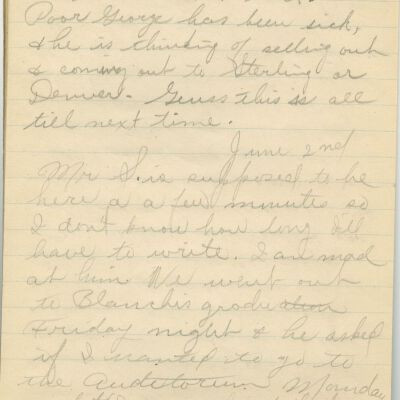 Poor George has been sick,
& he is thinking of selling out
& coming out to Sterling or
Denver. Guess this is all
till next time.
June 2nd
Mr S. is supposed to be
here a a few minutes so
I don't know how long I'll
have to write. I am mad
at him We went out
to Blanch's graduation
Friday night & he asked
if I wanted to go to
the Auditorium Monday